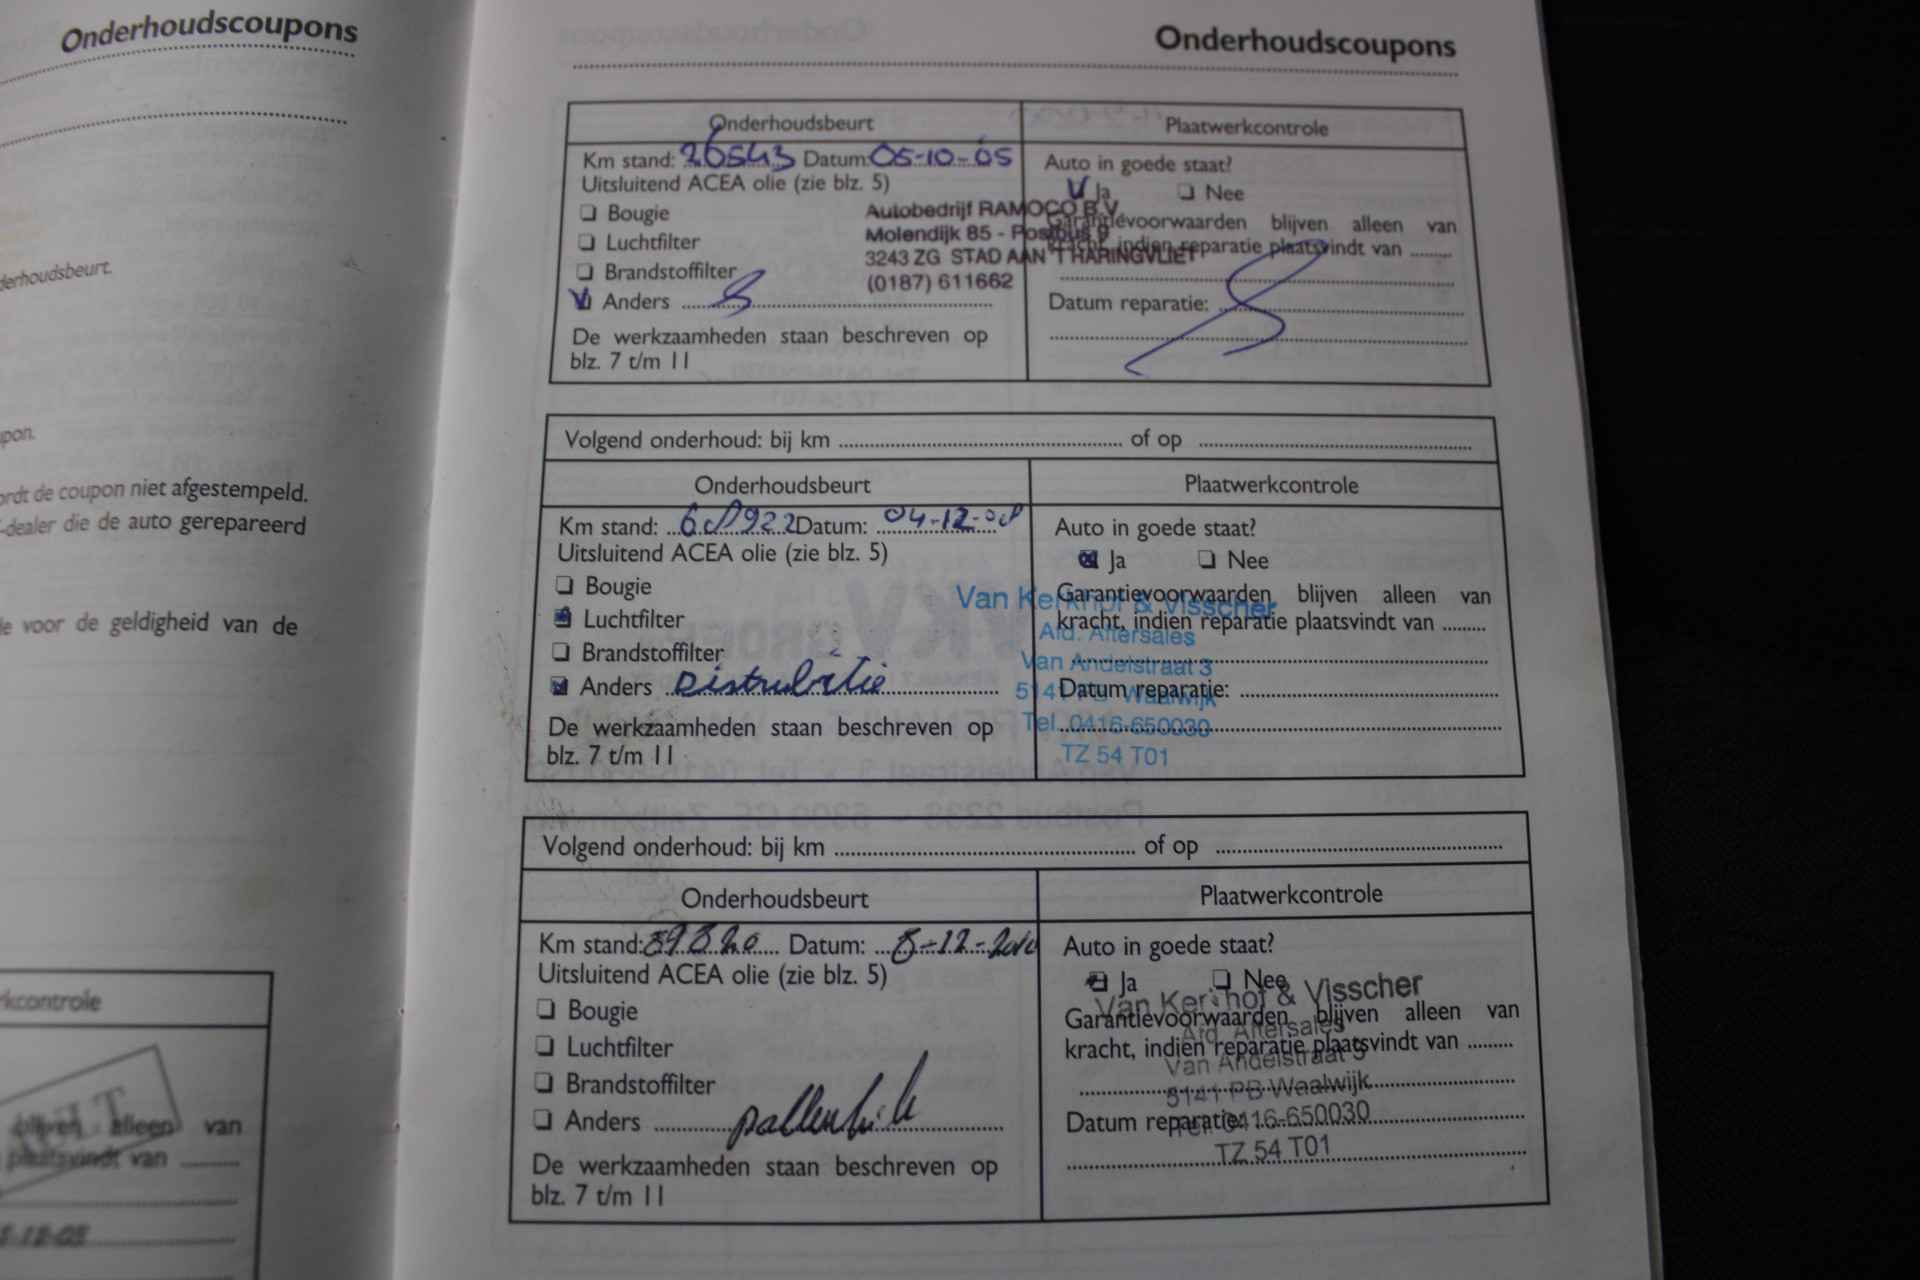 Onderhoudscoupons
derhoudsbeurt.
pon.
ordt de coupon niet afgestempeld.
-dealer die de auto gerepareerd
le voor de geldigheid van de
rkcontrole
blijven alleen van
plaatsvindt van
Onderhoudscoupons
Onderhoudsbeurt
Plaatwerkcontrole
Km stand: 26543 Datum: 05-10-05
Uitsluitend ACEA olie (zie blz. 5)
Bougie
Luchtfilter
Brandstoffilter
Anders
De werkzaamheden staan beschreven op
blz. 7 t/m 11
Autobedrijf RAMOCO B.V.
Molendijk 85 - Postbus 9
3243 ZG STAD AAN 'T HARINGVLIET
(0187) 611662
Auto in goede staat?
Ja Nee
Garantievoorwaarden blijven alleen van
kracht, indien reparatie plaatsvindt van
Datum reparatie:
Volgend onderhoud: bij km of op
Onderhoudsbeurt
Plaatwerkcontrole
Km stand: 68922 Datum: 04-12-08
Uitsluitend ACEA olie (zie blz. 5)
Bougie
Luchtfilter
Brandstoffilter
Anders Distributie
De werkzaamheden staan beschreven op
blz. 7 t/m 11
Auto in goede staat?
Ja Nee
Garantievoorwaarden blijven alleen van
kracht, indien reparatie plaatsvindt van
Datum reparatie:
Van Kerkhof & Visscher
Afd. Aftersales
Van Andelstraat 3
5141 PB Waalwijk
Tel. 0416-650030
TZ 54 T01
Volgend onderhoud: bij km of op
Onderhoudsbeurt
Plaatwerkcontrole
Km stand: Datum: 8-12-2010
Uitsluitend ACEA olie (zie blz. 5)
Bougie
Luchtfilter
Brandstoffilter
Anders
De werkzaamheden staan beschreven op
blz. 7 t/m 11
Auto in goede staat?
Ja Nee
Garantievoorwaarden blijven alleen van
kracht, indien reparatie plaatsvindt van
Datum reparatie:
Van Kerkhof & Visscher
Afd. Aftersales
Van Andelstraat 3
5141 PB Waalwijk
Tel. 0416-650030
TZ 54 T01